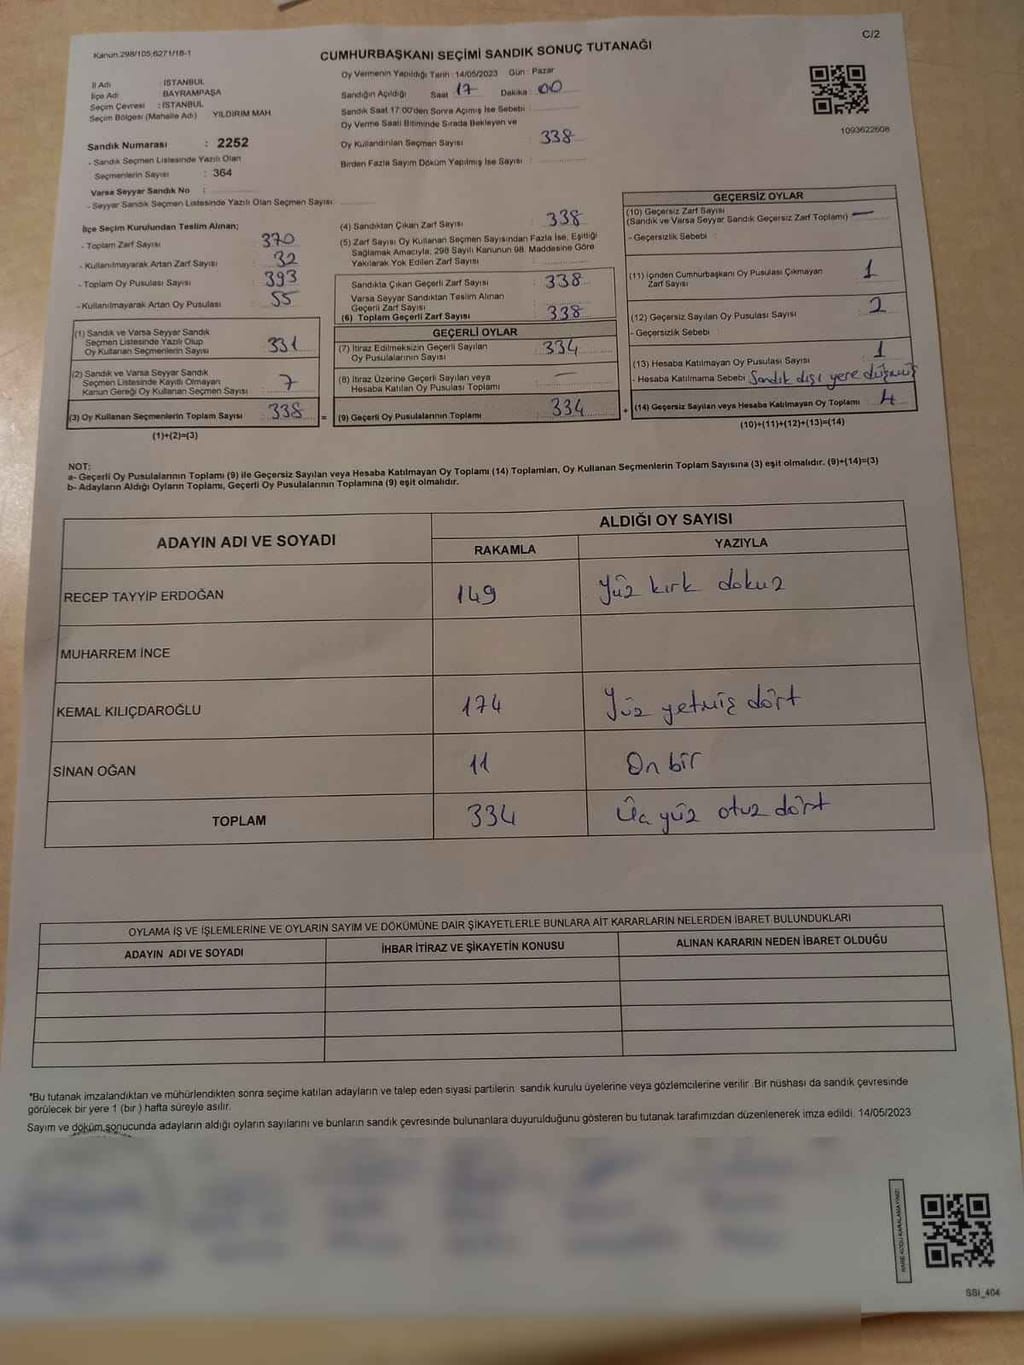 Kanun.298/105;6271/18-1
C/2
CUMHURBAŞKANI SEÇİMİ SANDIK SONUÇ TUTANAĞI
İl Adı : İSTANBUL
İlçe Adı : BAYRAMPAŞA
Seçim Çevresi : İSTANBUL
Seçim Bölgesi (Mahalle Adı) YILDIRIM MAH
Sandık Numarası : 2252
- Sandık Seçmen Listesinde Yazılı Olan
Seçmenlerin Sayısı : 364
Varsa Seyyar Sandık No :
- Seyyar Sandık Seçmen Listesinde Yazılı Olan Seçmen Sayısı:
Oy Vermenin Yapıldığı Tarih : 14/05/2023 Gün : Pazar
Sandığın Açıldığı Saat 17 Dakika : 00
Sandık Saat 17:00'den Sonra Açımış İse Sebebi :
Oy Verme Saati Bitiminde Sırada Bekleyen ve
Oy Kullandırılan Seçmen Sayısı : 338
Birden Fazla Sayım Döküm Yapılmış İse Sayısı :
1093622608
İlçe Seçim Kurulundan Teslim Alınan;
- Toplam Zarf Sayısı : 370
- Kullanılmayarak Artan Zarf Sayısı : 32
- Toplam Oy Pusulası Sayısı : 393
- Kullanılmayarak Artan Oy Pusulası : 55
(1) Sandık ve Varsa Seyyar Sandık
Seçmen Listesinde Yazılı Olup
Oy Kullanan Seçmenlerin Sayısı : 331
(2) Sandık ve Varsa Seyyar Sandık
Seçmen Listesinde Kayıtlı Olmayan
Kanun Gereği Oy Kullanan Seçmen Sayısı : 7
(3) Oy Kullanan Seçmenlerin Toplam Sayısı : 338 =
(1)+(2)=(3)
(4) Sandıktan Çıkan Zarf Sayısı : 338
(5) Zarf Sayısı Oy Kullanan Seçmen Sayısından Fazla İse, Eşitliği
Sağlamak Amacıyla; 298 Sayılı Kanunun 98. Maddesine Göre
Yakılarak Yok Edilen Zarf Sayısı :
Sandıkta Çıkan Geçerli Zarf Sayısı : 338
Varsa Seyyar Sandıktan Teslim Alınan
Geçerli Zarf Sayısı :
(6) Toplam Geçerli Zarf Sayısı : 338
GEÇERLİ OYLAR
(7) İtiraz Edilmeksizin Geçerli Sayılan
Oy Pusulalarının Sayısı : 334
(8) İtiraz Üzerine Geçerli Sayılan veya
Hesaba Katılan Oy Pusulaları Toplamı : —
(9) Geçerli Oy Pusulalarının Toplamı : 334 +
GEÇERSİZ OYLAR
(10) Geçersiz Zarf Sayısı
(Sandık ve Varsa Seyyar Sandık Geçersiz Zarf Toplamı) : —
- Geçersizlik Sebebi :
(11) İçinden Cumhurbaşkanı Oy Pusulası Çıkmayan
Zarf Sayısı : 1
(12) Geçersiz Sayılan Oy Pusulası Sayısı : 2
- Geçersizlik Sebebi :
(13) Hesaba Katılmayan Oy Pusulası Sayısı : 1
- Hesaba Katılmama Sebebi : Sandık dışı yere düşmüş
(14) Geçersiz Sayılan veya Hesaba Katılmayan Oy Toplamı : 4
(10)+(11)+(12)+(13)=(14)
NOT:
a- Geçerli Oy Pusulalarının Toplamı (9) ile Geçersiz Sayılan veya Hesaba Katılmayan Oy Toplamı (14) Toplamları, Oy Kullanan Seçmenlerin Toplam Sayısına (3) eşit olmalıdır. (9)+(14)=(3)
b- Adayların Aldığı Oyların Toplamı, Geçerli Oy Pusulalarının Toplamına (9) eşit olmalıdır.
ADAYIN ADI VE SOYADI
ALDIĞI OY SAYISI
RAKAMLA YAZIYLA
RECEP TAYYİP ERDOĞAN 149 Yüz kırk dokuz
MUHARREM İNCE
KEMAL KILIÇDAROĞLU 174 Yüz yetmiş dört
SİNAN OĞAN 11 On bir
TOPLAM 334 Üç yüz otuz dört
OYLAMA İŞ VE İŞLEMLERİNE VE OYLARIN SAYIM VE DÖKÜMÜNE DAİR ŞİKAYETLERLE BUNLARA AİT KARARLARIN NELERDEN İBARET BULUNDUKLARI
ADAYIN ADI VE SOYADI İHBAR İTİRAZ VE ŞİKAYETİN KONUSU ALINAN KARARIN NEDEN İBARET OLDUĞU
*Bu tutanak imzalandıktan ve mühürlendikten sonra seçime katılan adayların ve talep eden siyasi partilerin sandık kurulu üyelerine veya gözlemcilerine verilir .Bir nüshası da sandık çevresinde
görülecek bir yere 1 (bir ) hafta süreyle asılır.
Sayım ve döküm sonucunda adayların aldığı oyların sayılarını ve bunların sandık çevresinde bulunanlara duyurulduğunu gösteren bu tutanak tarafımızdan düzenlenerek imza edildi. 14/05/2023
KARE KODU KARALAMAYINIZ!
SSI_404